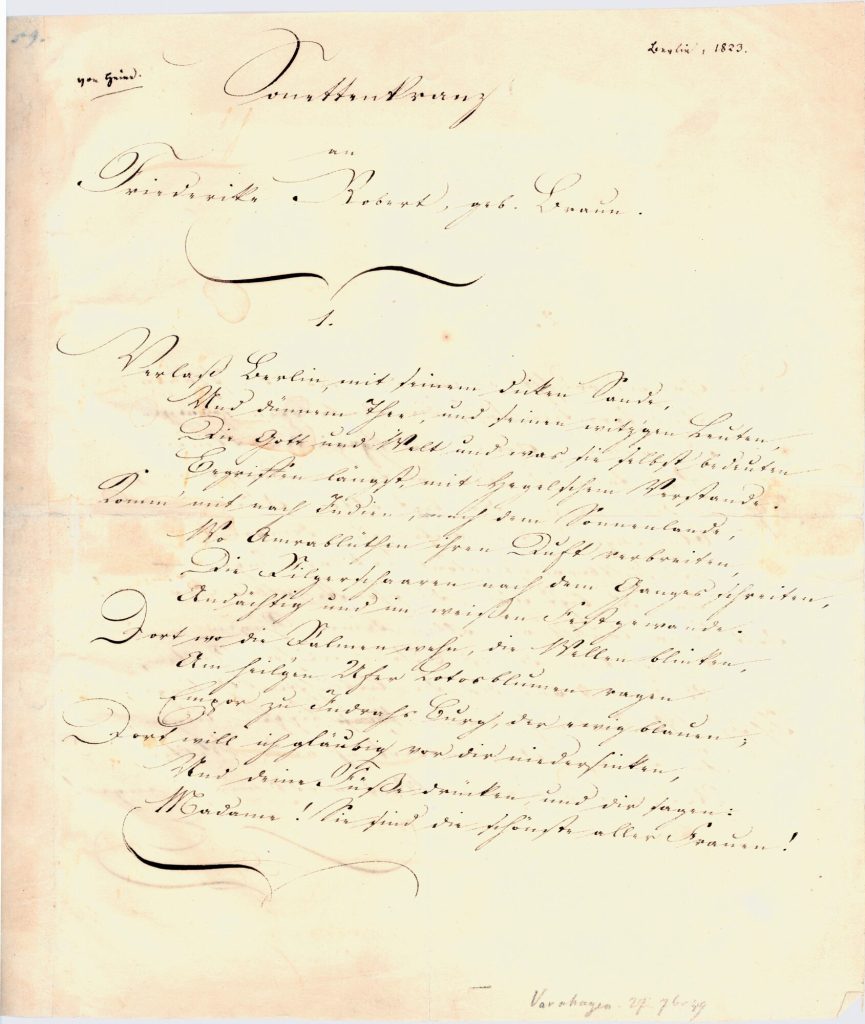 Berlin, 1823.
von Heine.
Sonettenkranz
an
Friederike Robert, geb. Braun.
1.
Verlaß Berlin, mit seinem dicken Sande,
Und dünnem Thee, und seinen witz'gen Leuten,
Die Gott und Welt und was sie selbst bedeuten
Begriffen längst, mit Hegelschem Verstande.
Komm' mit nach Indien, nach dem Sonnenlande,
Wo Amrablüthen ihren Duft verbreiten,
Die Pilgerschaaren nach dem Ganges schreiten,
Andächtig und im weißen Festgewande.
Dort wo die Palmen wehn, die Wellen blinken,
Am heil'gen Ufer Lotosblumen ragen
Empor zu Indrahs Burg, der ewig blauen;
Dort will ich gläubig vor dir niedersinken,
Und deine Füße drücken, und dir sagen:
Madame! Sie sind die schönste aller Frauen!
Varnhagen